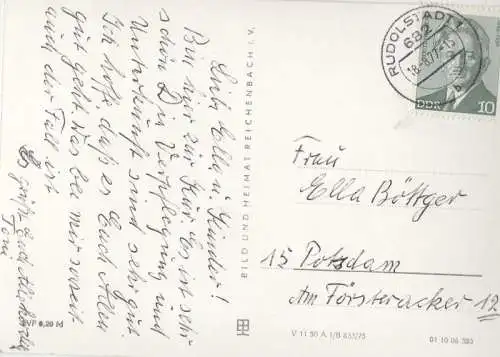 Liebe Ella u. Kinder!
Bin hier zur Kur. Es ist sehr
schön. Die Verpflegung und
Unterkunft sind sehr gut.
Ich hoffe daß es Euch Allen
gut geht. Was bei mir soweit
auch der Fall ist.
Es grüßt Euch Alle herzlich
Toni
EVP 0,20 M
BILD UND HEIMAT REICHENBACH I. V.
RUDOLSTADT 1
682
-8.77-15
DDR 10
Frau
Ella Böttger
15 Potsdam
Am Försteracker 12
V 11 50 A 1/B 833/75
01 10 06 383